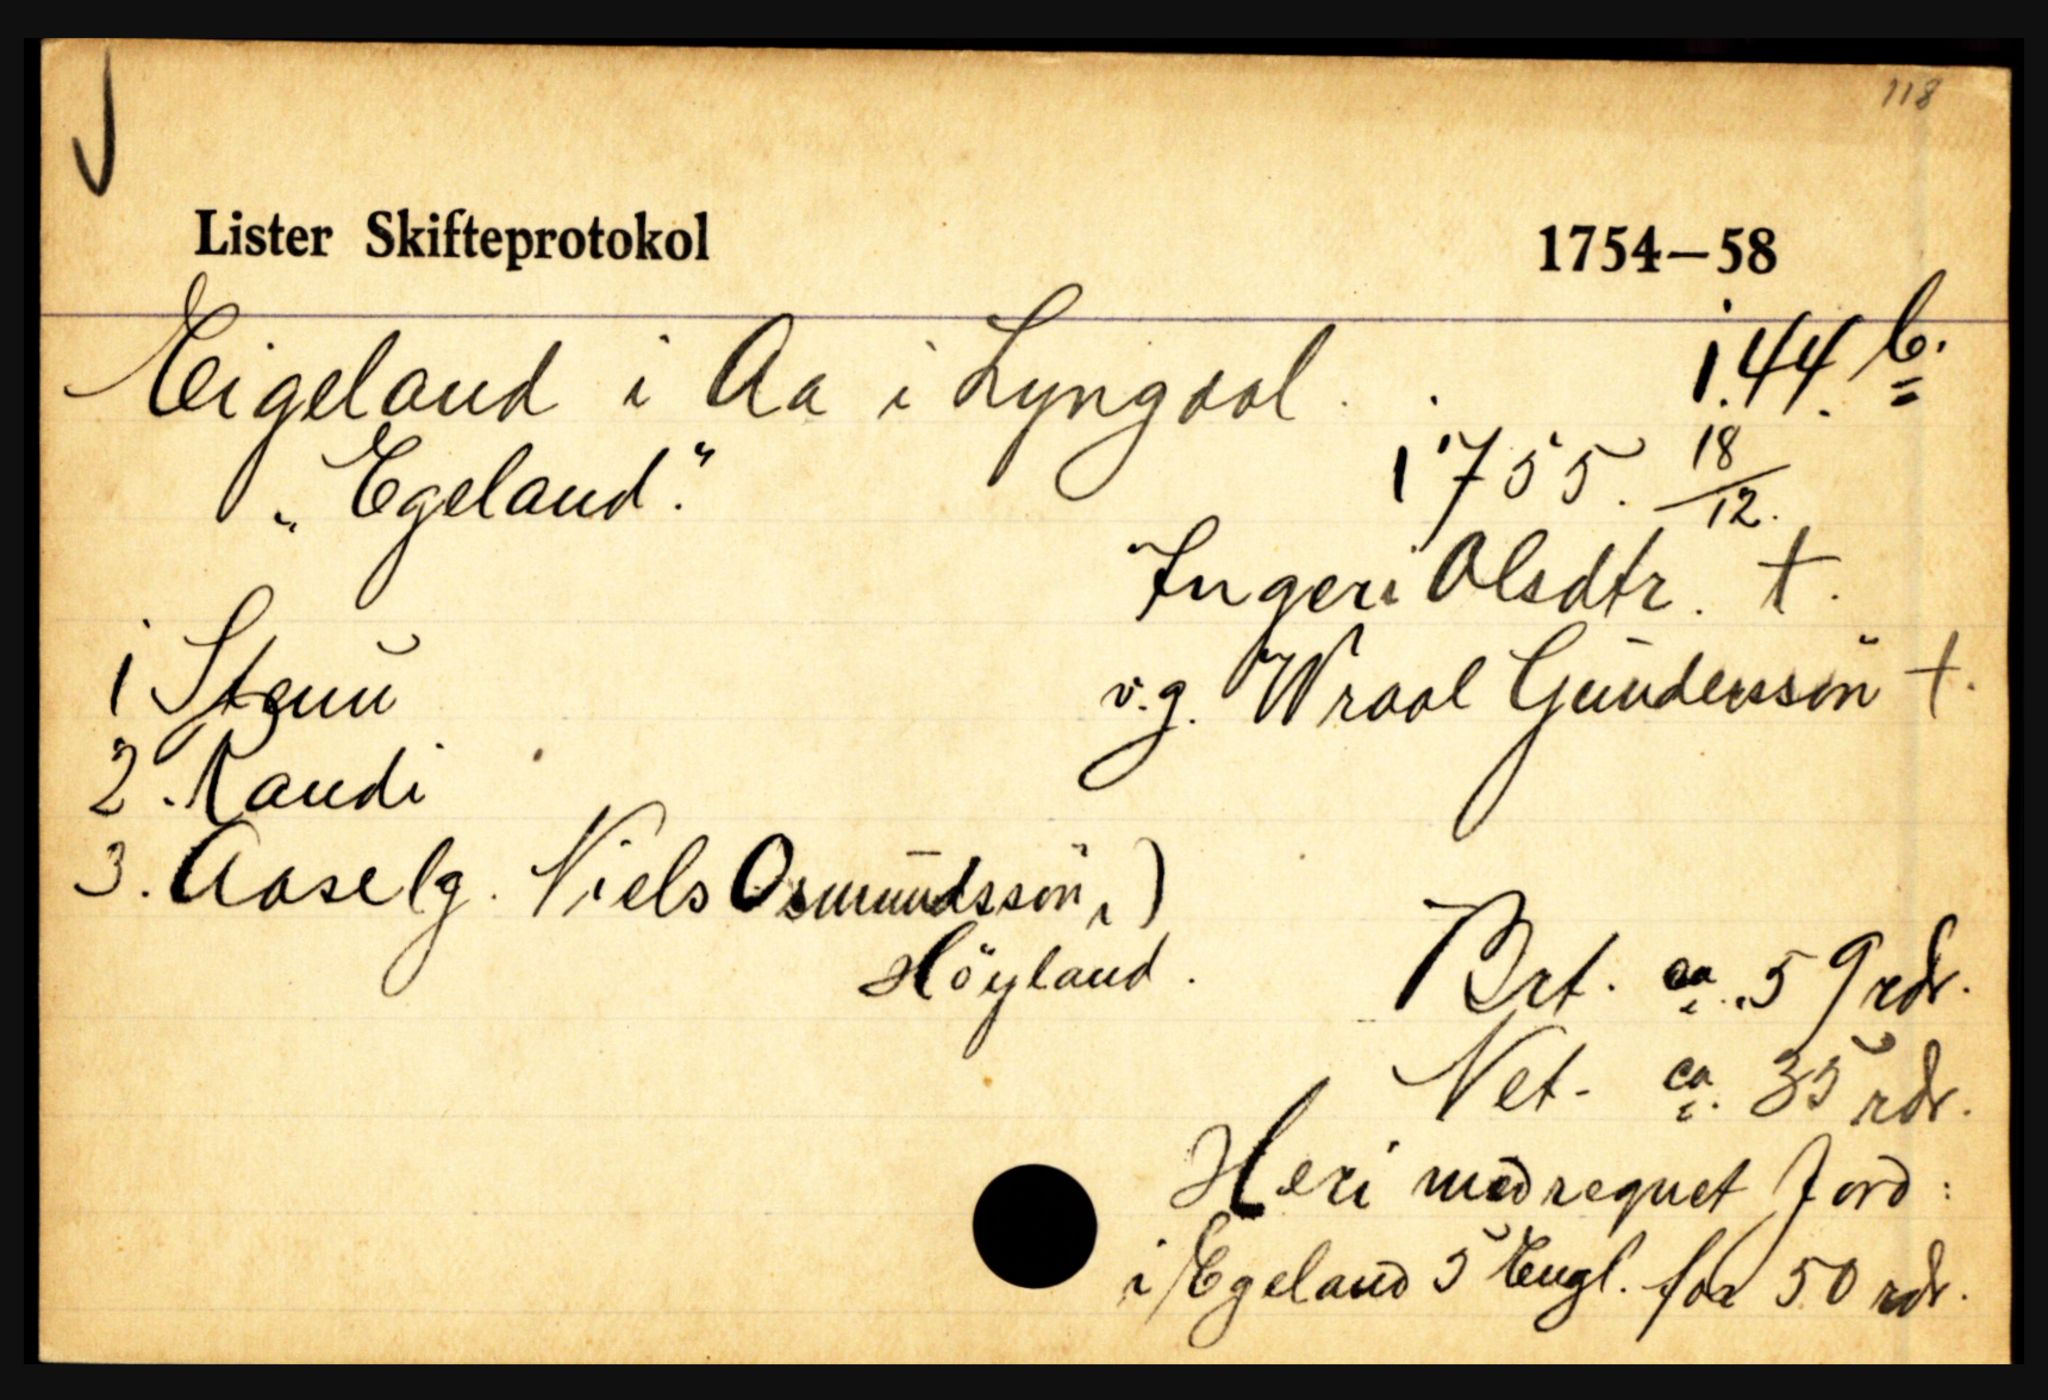 118
Lister Skifteprotokol 1754—58
Eigeland i Aa i Lyngdal. 144 b.
„Egeland." 1755. 18/12.
Ingeri Olsdtr. †.
1 Stenu v.g. Wraal Gundersön †.
2. Randi
3. Aase lg. Niels Osmundssön, )
Höyland.
Brt. ca. 59 rdr.
Net. ca. 35 rdr.
Heri medregnet Jord:
i Egeland 5 Engl. for 50 rdr.